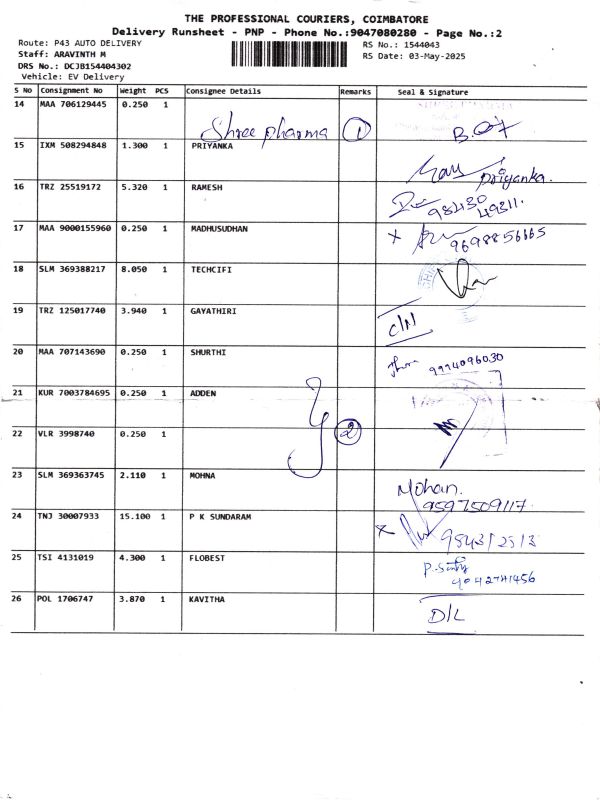 THE PROFESSIONAL COURIERS, COIMBATORE
Delivery Runsheet - PNP - Phone No.:9047080280 - Page No.:2
Route: P43 AUTO DELIVERY
Staff: ARAVINTH M
DRS No.: DCJB154404302
Vehicle: EV Delivery
RS No.: 1544043
RS Date: 03-May-2025
S No Consignment No Weight PCS Consignee Details Remarks Seal & Signature
14 MAA 706129445 0.250 1
Shree pharma 1
15 IXM 508294848 1.300 1 PRIYANKA
Priyanka.
16 TRZ 25519172 5.320 1 RAMESH
98430
49311.
17 MAA 9000155960 0.250 1 MADHUSUDHAN
9698856665
18 SLM 369388217 8.050 1 TECHCIFI
19 TRZ 125017740 3.940 1 GAYATHIRI
C/N
20 MAA 707143690 0.250 1 SHURTHI
9994096030
21 KUR 7003784695 0.250 1 ADDEN
22 VLR 3998740 0.250 1
2
23 SLM 369363745 2.110 1 MOHNA
Mohan.
9597509117
24 TNJ 30007933 15.100 1 P K SUNDARAM
25 TSI 4131019 4.300 1 FLOBEST
26 POL 1706747 3.870 1 KAVITHA
D/L